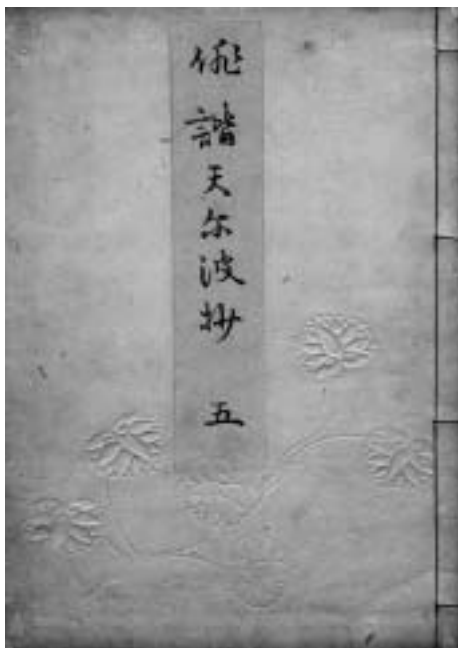 俳諧天尓波抄 五